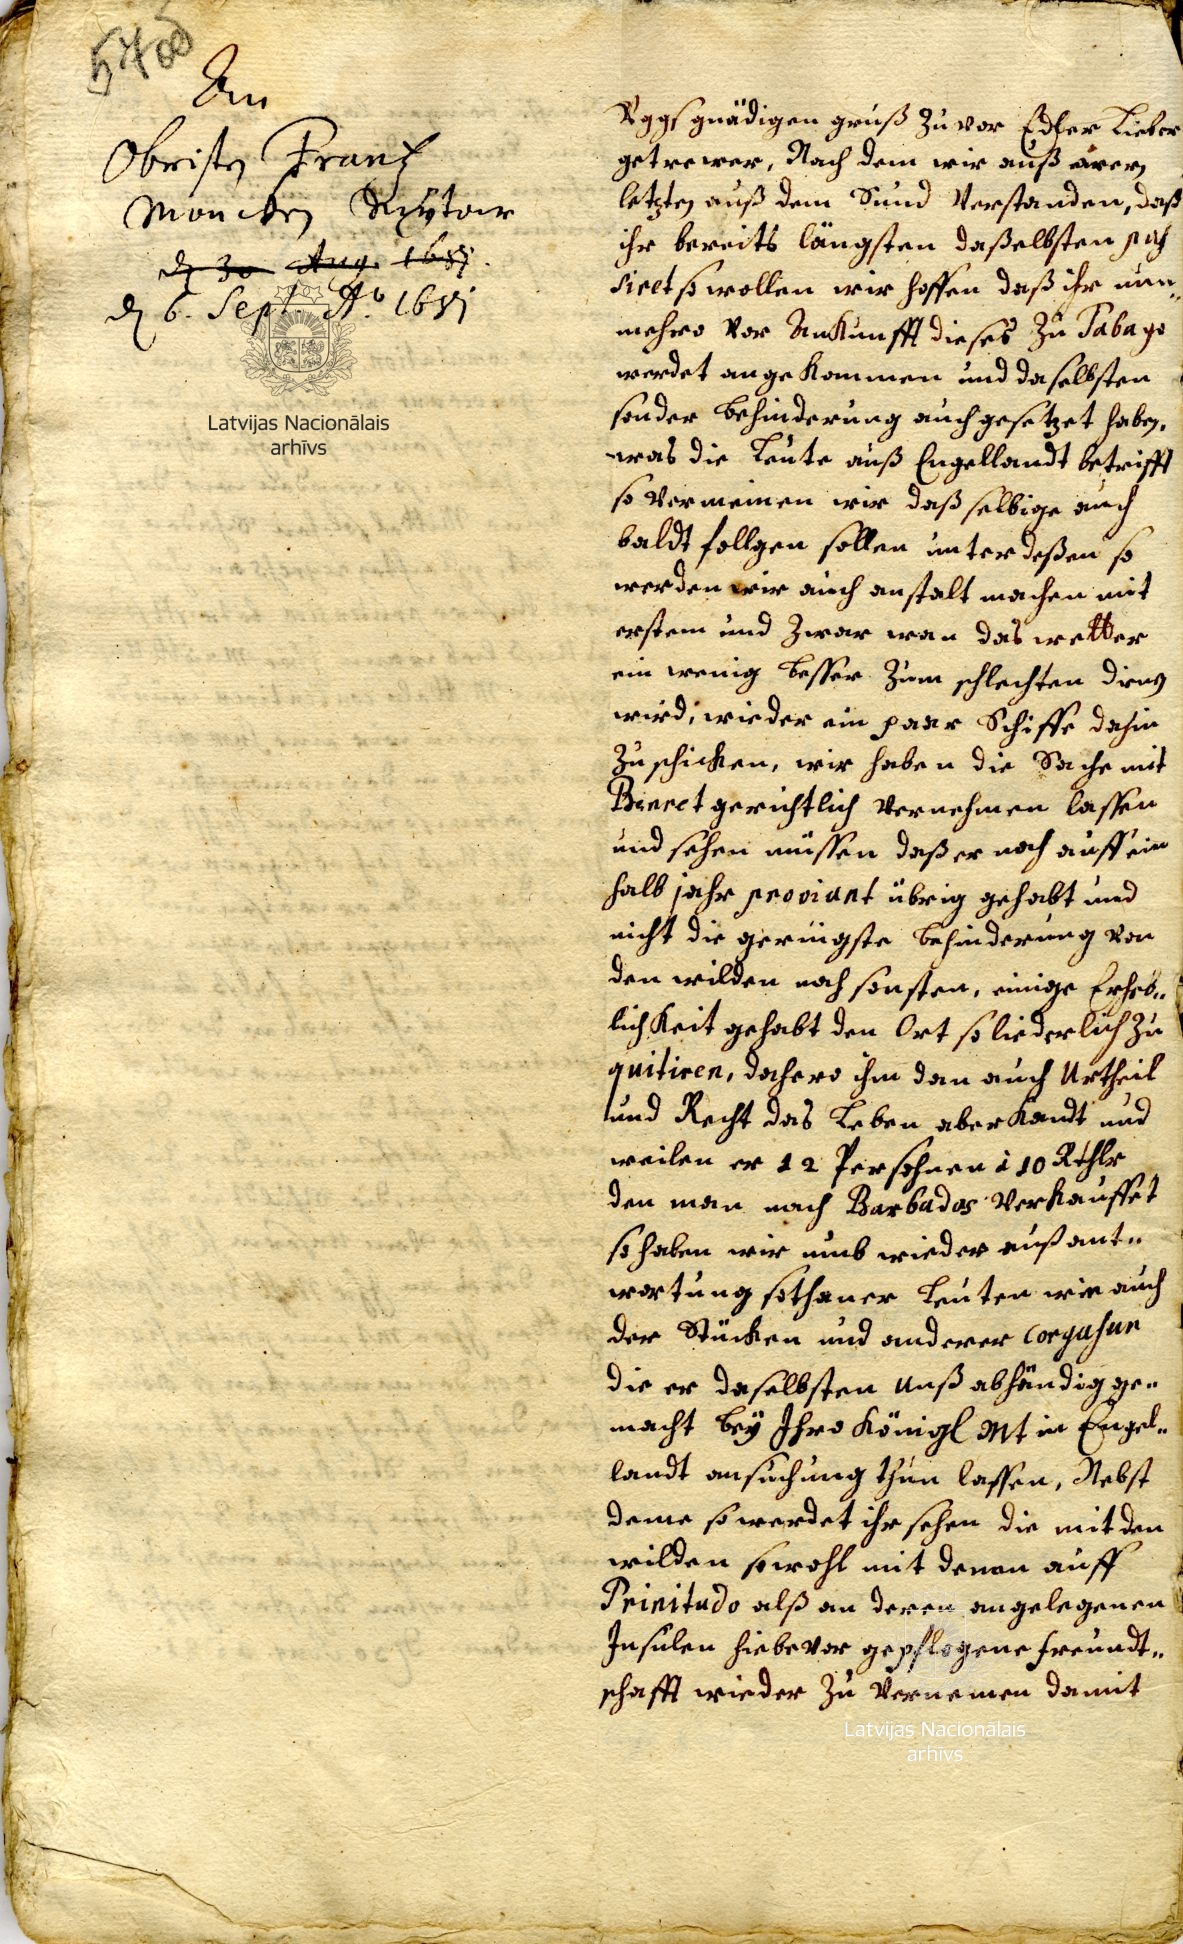 An
Obristen Frantz
Moncken Ruytair
d 30 Aug. 1681.
d 6. Sept. Ao. 1681
Latvijas Nacionālais
arhīvs
gnädigen gruß Zuvor Edler Lieber
getrewer, Nach dem wir auß ewren
letzten auß dem Sund Verstanden, daß
ihr bereits längsten daßelbsten pas
siret so wollen wir hoffen daß ihr nun-
mehro Vor Ankunfft dieses Zu Tabago
werdet angekommen und daselbsten
sonder behinderung auch gesetzet haben.
was die Leute auß Engellandt betrifft
so Vermeinen wir daß selbige auch
baldt follgen sollen unterdeßen so
werden wir auch anstalt machen mit
erstem und Zwar wan das wetter
ein wenig besser Zum schlechten
wird, wieder ein paar Schiffe dahin
Zuschicken, wir haben die Sache mit
gerichtlich Vernehmen lassen
und sehen müssen daß er noch auff ein
halb jahr proviant übrig gehabt und
nicht die geringste behinderung von
den wilden noch sonsten, einige Erheb-
lichkeit gehabt den Ort so liederlich Zu
quitiren, dahero ihm dan auch Urtheil
und Recht das Leben aberkandt und
weilen er 12 Persohnen à 10 Rthlr
den man nach Barbados Verkauffet
so haben wir umb wieder außant-
wortung sothaner Leuten wie auch
der Stücken und anderer Cargasun
die er daselbsten Unß abhändig ge-
macht bey Ihro Königl Mt in Engel-
landt ansuchung thun lassen, Nebst
deme so werdet ihr sehen die mit den
wilden sowohl mit denen auff
Trinitado alß an deren angelegenen
Insulen hiebevor gepflogene freundt-
schafft wieder Zu Vernemen damit
Latvijas Nacionālais
arhīvs